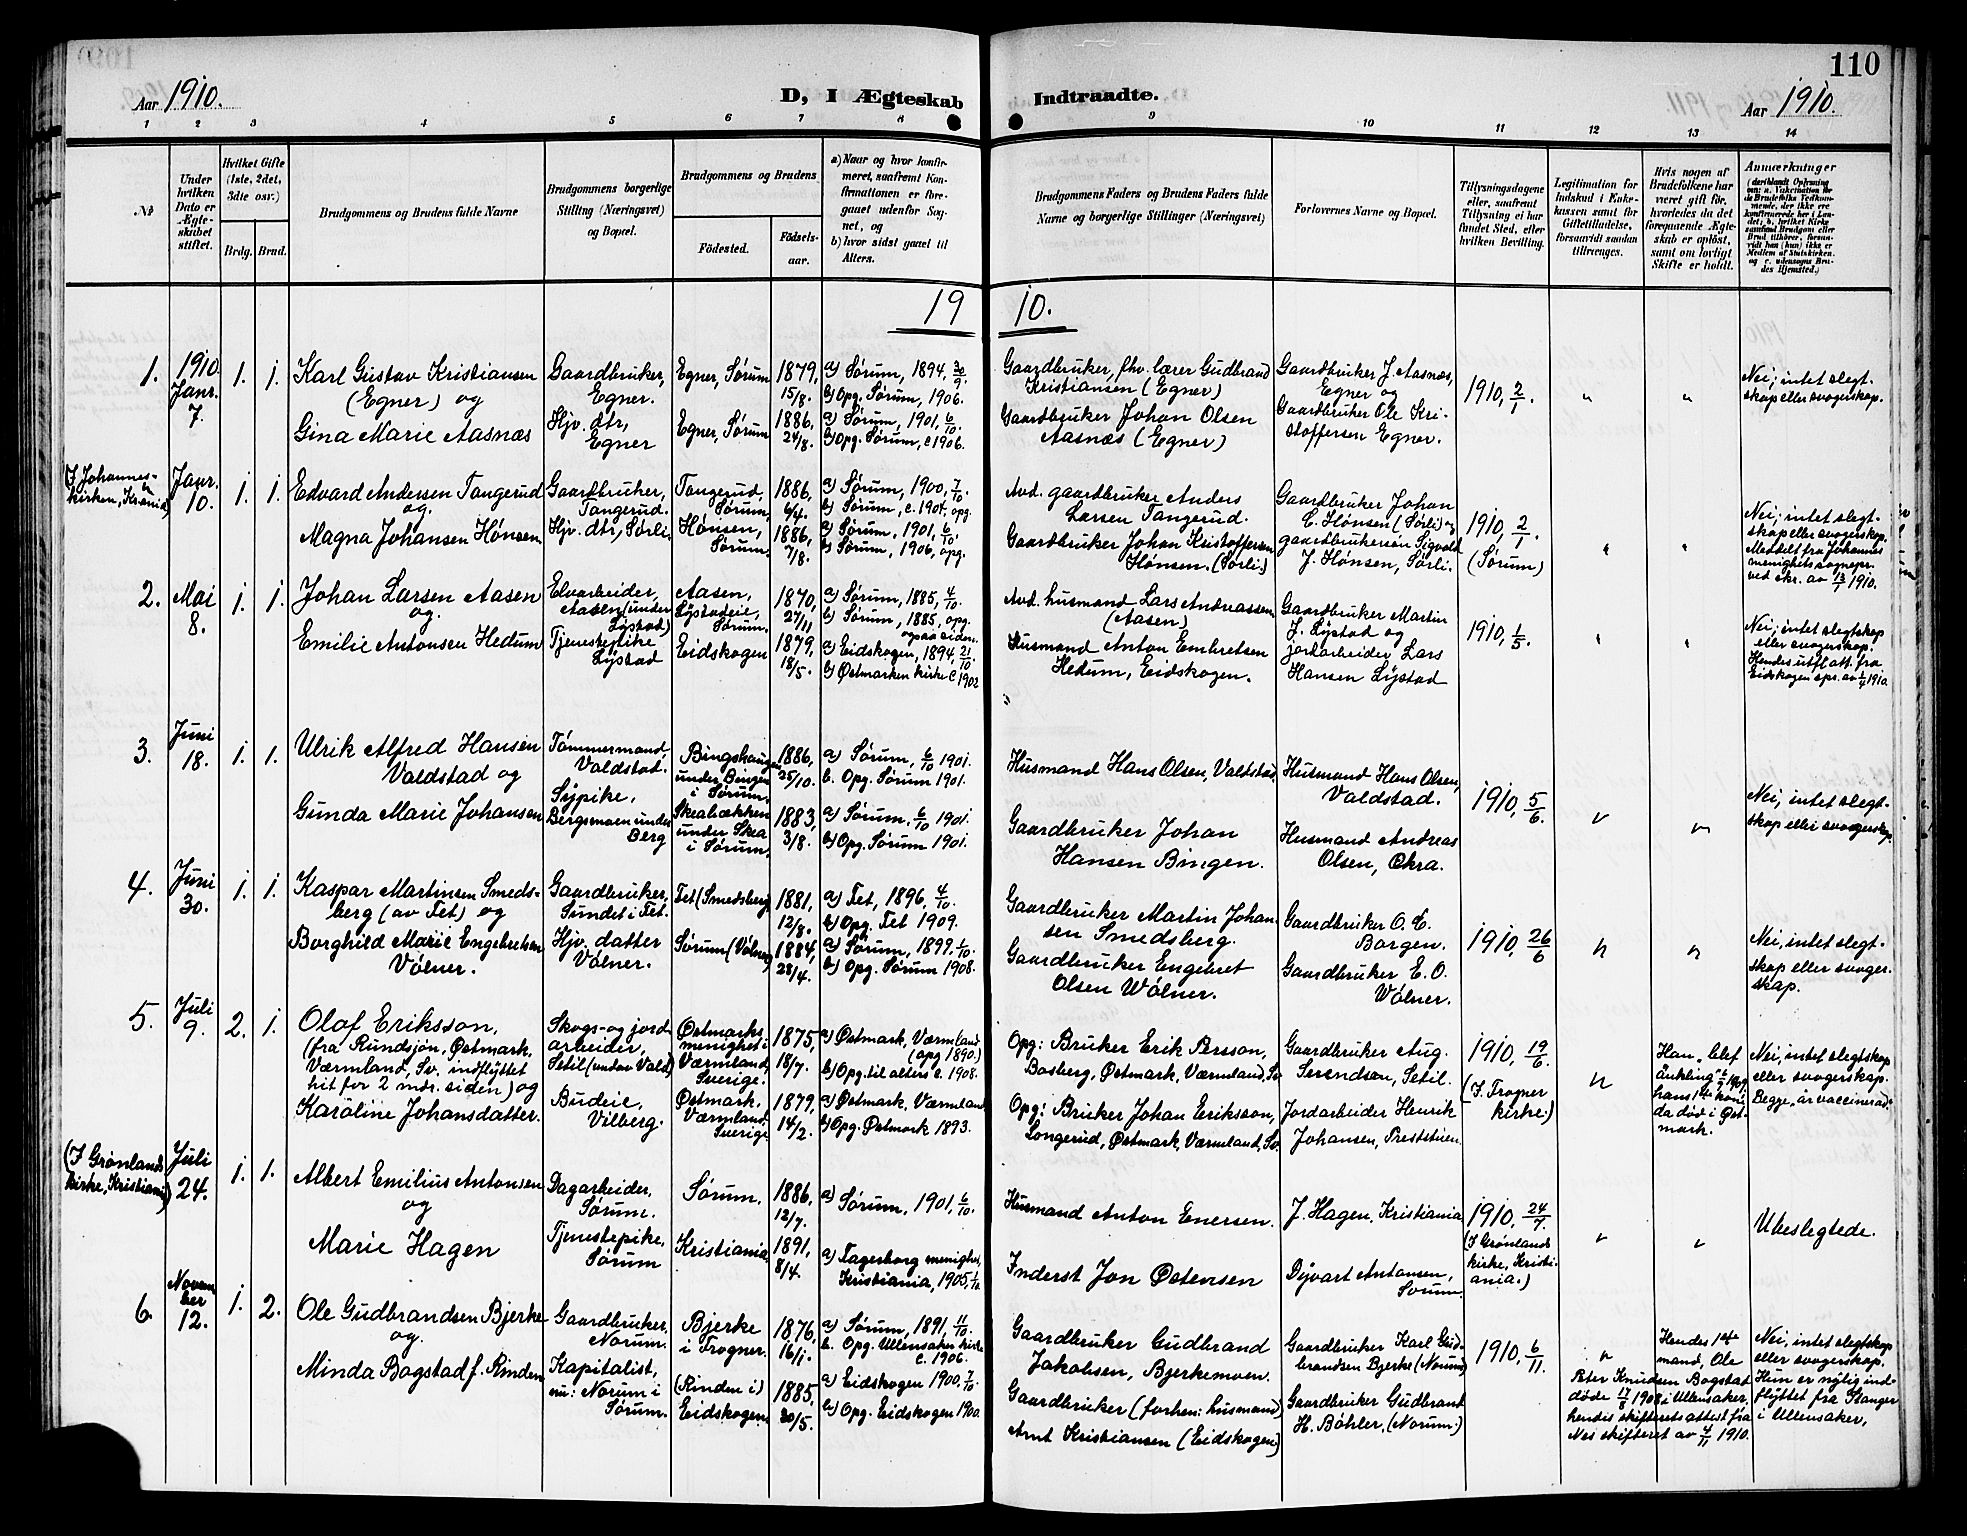 110
Aar 1910.
D, I Ægteskab Indtraadte.
Aar 1910.
1 2 3 4 5 6 7 8 9 10 11 12 13 14
Nt
Under hvilken Dato er Ægteskabet stiftet.
Hvilket Gifte (1ste, 2det, 3dte osv.)
Brdg. Brud.
Brudgommens og Brudens fulde Navne
Brudgommens borgerlige Stilling (Næringsvei) og Bopæl.
Brudgommens og Brudens
Födested.
Födselsaar.
a) Naar og hvor konfirmeret, saafremt Konfirmationen er foregaaet udenfor Sognet, og
b) hvor sidst gaaet til Alters.
Brudgommens Faders og Brudens Faders fulde Navne og borgerlige Stillinger (Næringsvei)
Forlovernes Navne og Bopæl.
Tillysningsdagene eller, saafremt Tillysning ei har fundet Sted, efter hvilken Bevilling.
Legitimation for Indskud i Enkekassen samt for Giftetilladelse, forsaavidt saadan tiltrænges.
Hvis nogen af Brudefolkene har været gift för, hvorledes da det foregaaende Ægteskab er oplöst, samt om lovligt Skifte er holdt.
Anmærkninger
19 10.
1.
1910
Janr.
7.
1. 1.
Karl Gustav Kristiansen
(Egner) og
Gina Marie Aasnæs
Gaardbruker,
Egner.
Hjv. dtr,
Egner
Egner, Sørum
Egner, Sørum
1879,
15/8.
1886,
24/8.
a) Sørum, 1894, 30/9.
b) Opg. Sørum, 1906.
a) Sørum, 1901, 6/10.
b) Opg. Sørum, c 1906.
Gaardbruker, fhv. lærer Gudbrand
Kristiansen (Egner)
Gaardbruker Johan Olsen
Aasnæs (Egner)
Gaardbruker J. Aasnæs,
Egner og
Gaardbruker Ole Kristoffersen
Egner.
1910, 2/1.
"
"
Nei; intet slegtskap
eller svogerskap.
(I Johanneskirken,
Kr.ania)
Janr.
10.
1. 1.
Edvard Andersen Tangerud
og
Magna Johansen Hønsen
Gaardbruker,
Tangerud.
Hjv. dtr, Sørli
Tangerud,
Sørum,
Hønsen,
Sørum.
1886,
6/4.
1886,
7/8.
a) Sørum, 1900, 7/10.
b) Sørum, c. 1904, opg.
a) Sørum, 1901, 6/10.
b) Sørum, 1906, opg.
Avd. gaardbruker Anders
Larsen Tangerud.
Gaardbruker Johan Kristoffersen
Hønsen. (Sørli.)
Gaardbruker Johan
C. Hønsen (Sørli) og
gaardbrukersøn Sigvald
J. Hønsen, Sørli.
1910, 2/1.
(Sørum)
"
"
Nei; intet slegtskap
eller svogerskap.
Meddelt fra Johannes
menighets sognepr.
ved skr. av 13/1 1910.
2.
Mai
8.
1. 1.
Johan Larsen Aasen
og
Emilie Antonsen Hedum
Elvarbeider,
Aasen (under
Lystad)
Tjenestepike
Lystad
Aasen,
Lystadeie,
Sørum.
Eidskogen
1870,
27/11
1879,
18/5.
a) Sørum, 1885, 4/10.
b) Sørum, 1885, opg.
ogsaa siden.
a) Eidskogen, 1894, 21/10.
b) Østmarken kirke c 1902
Avd. husmand Lars Andreassen
(Aasen)
Husmand Anton Embretsen
Hedum, Eidskogen.
Gaardbruker Martin
J. Lystad og
jordarbeider Lars
Hansen Lystad
1910, 1/5.
"
"
Nei; intet slegtskap
eller svogerskap.
Hendes utfl. att. fra
Eidskogen spr. av 1/4 1910.
3.
Juni
18.
1. 1.
Ulrik Alfred Hansen
Valdstad og
Gunda Marie Johansen
Tømmermand,
Valdstad.
Sypike,
Bergsmoen under
Berg
Bingshaugen
under Bingen
i Sørum.
Skeabækken
under Skea
i Sørum.
1886,
25/10.
1883,
3/8.
a) Sørum, 6/10 1901.
b. Opg. Sørum 1901.
a) Sørum, 6/10 1901.
b) Opg. Sørum 1901.
Husmand Hans Olsen, Valdstad
Gaardbruker Johan
Hansen Bingen.
Husmand Hans Olsen,
Valdstad.
Husmand Andreas
Olsen, Økra.
1910, 5/6.
"
"
Nei, intet slegtskap
eller svogerskap.
4.
Juni
30.
1. 1.
Kaspar Martinsen Smedsberg
(av Fet) og
Borghild Marie Engebretsen
Vølner.
Gaardbruker,
Sundet i Fet.
Hjv. datter
Vølner.
Fet (Smedsberg)
Sørum (Vølner)
1881,
12/8.
1884,
28/4.
a) Fet, 1896, 4/10.
b) Opg. Fet 1909.
a) Sørum, 1899, 1/10.
b) Opg. Sørum 1908.
Gaardbruker Martin Johansen
Smedsberg.
Gaardbruker Engebret
Olsen Wølner.
Gaardbruker O. E.
Borgen.
Gaardbruker E. O.
Wølner.
1910, 26/6
"
"
Nei, intet slegtskap
eller svogerskap.
5.
Juli
9.
2. 1.
Olof Eriksson,
(fra Rundsjøn, Østmark,
Värmland, Sv. indflyttet
hit for 2 mdr. siden) og
Karoline Johansdatter.
Skogs- og jord
arbeider,
Setil (under Vald)
Budeie,
Vilberg.
Østmarks
menighet i
Värmland,
Sverige.
Østmark,
Värmland,
Sverige
1875,
18/7.
1879,
14/2.
a) Østmark, Värmland
(opg 1890.)
b) Opg. til alters c. 1908.
a) Østmark, Värmland
b) Opg. Østmark 1893.
Opg: Bruker Erik Persson,
Bosberg, Østmark, Värmland, Sv
Opg: Bruker Johan Eriksson,
Longerud, Østmark, Värmland, Sv.
Gaardbruker Aug.
Serendsen, Setil.
Jordarbeider Henrik
Johansen, Prestetuen
1910, 19/6.
(I Frogner
kirke.)
"
Han "blef
änkling" 4/2 1909,
hans 1ste kone
da død i Østmark.
Nei, intet slegtskap
eller svogerskap.
Begge "är vaccinerad".
(I Grønlands
kirke, Kristiania)
Juli
24.
1. 1.
Albert Emilius Antonsen
og
Marie Hagen
Dagarbeider,
Sørum.
Tjenestepike,
Sørum
Sørum.
Kristiania
1886,
12/7.
1891,
8/4.
a) Sørum, 1901, 6/10.
a) Fagerborg menighet,
Kristiania, 1905, 1/10.
Husmand Anton Enersen.
Inderst Jon Østensen
J. Hagen, Kristiania
Dyvart Antonsen,
Sørum.
1910, 24/7
(I Grønlands
kirke, Kristiania.)
"
"
Ubeslegtede.
6.
November
12.
1. 2.
Ole Gudbrandsen Bjerke
og
Minda Bogstad f. Rinden
Gaardbruker,
Norum.
Kapitalist,
nu: Norum i
Sørum.
Bjerke
i Frogner.
(Rinden i)
Eidskogen
1876,
16/1.
1885,
20/5.
a) Sørum, 1891, 11/10.
b. Opg. Ullensaker kirke
c. 1906.
a) Eidskogen 1900, 7/10
b) Opg. Eidskogen 1900.
Gaardbruker Gudbrand
Jakobsen, Bjerkemoen.
Gaardbruker (forhen: husmand)
Arnt Kristiansen (Eidskogen)
Gaardbruker Karl Gudbrandsen
Bjerke (Norum)
Gaardbruker Gudbrand
H. Bøhler, (Norum.)
1910, 6/11.
"
Hendes 1ste
mand, Ole
Peter Knudsen Bogstad
døde 17/8 1908 i Ullensaker,
hendes skifterets attest fra
Nes skifteret av 4/11 1910.
Nei, intet slegtskap
eller svogerskap.
Hun er nylig indflyttet
fra Stanger
i Ullensaker,